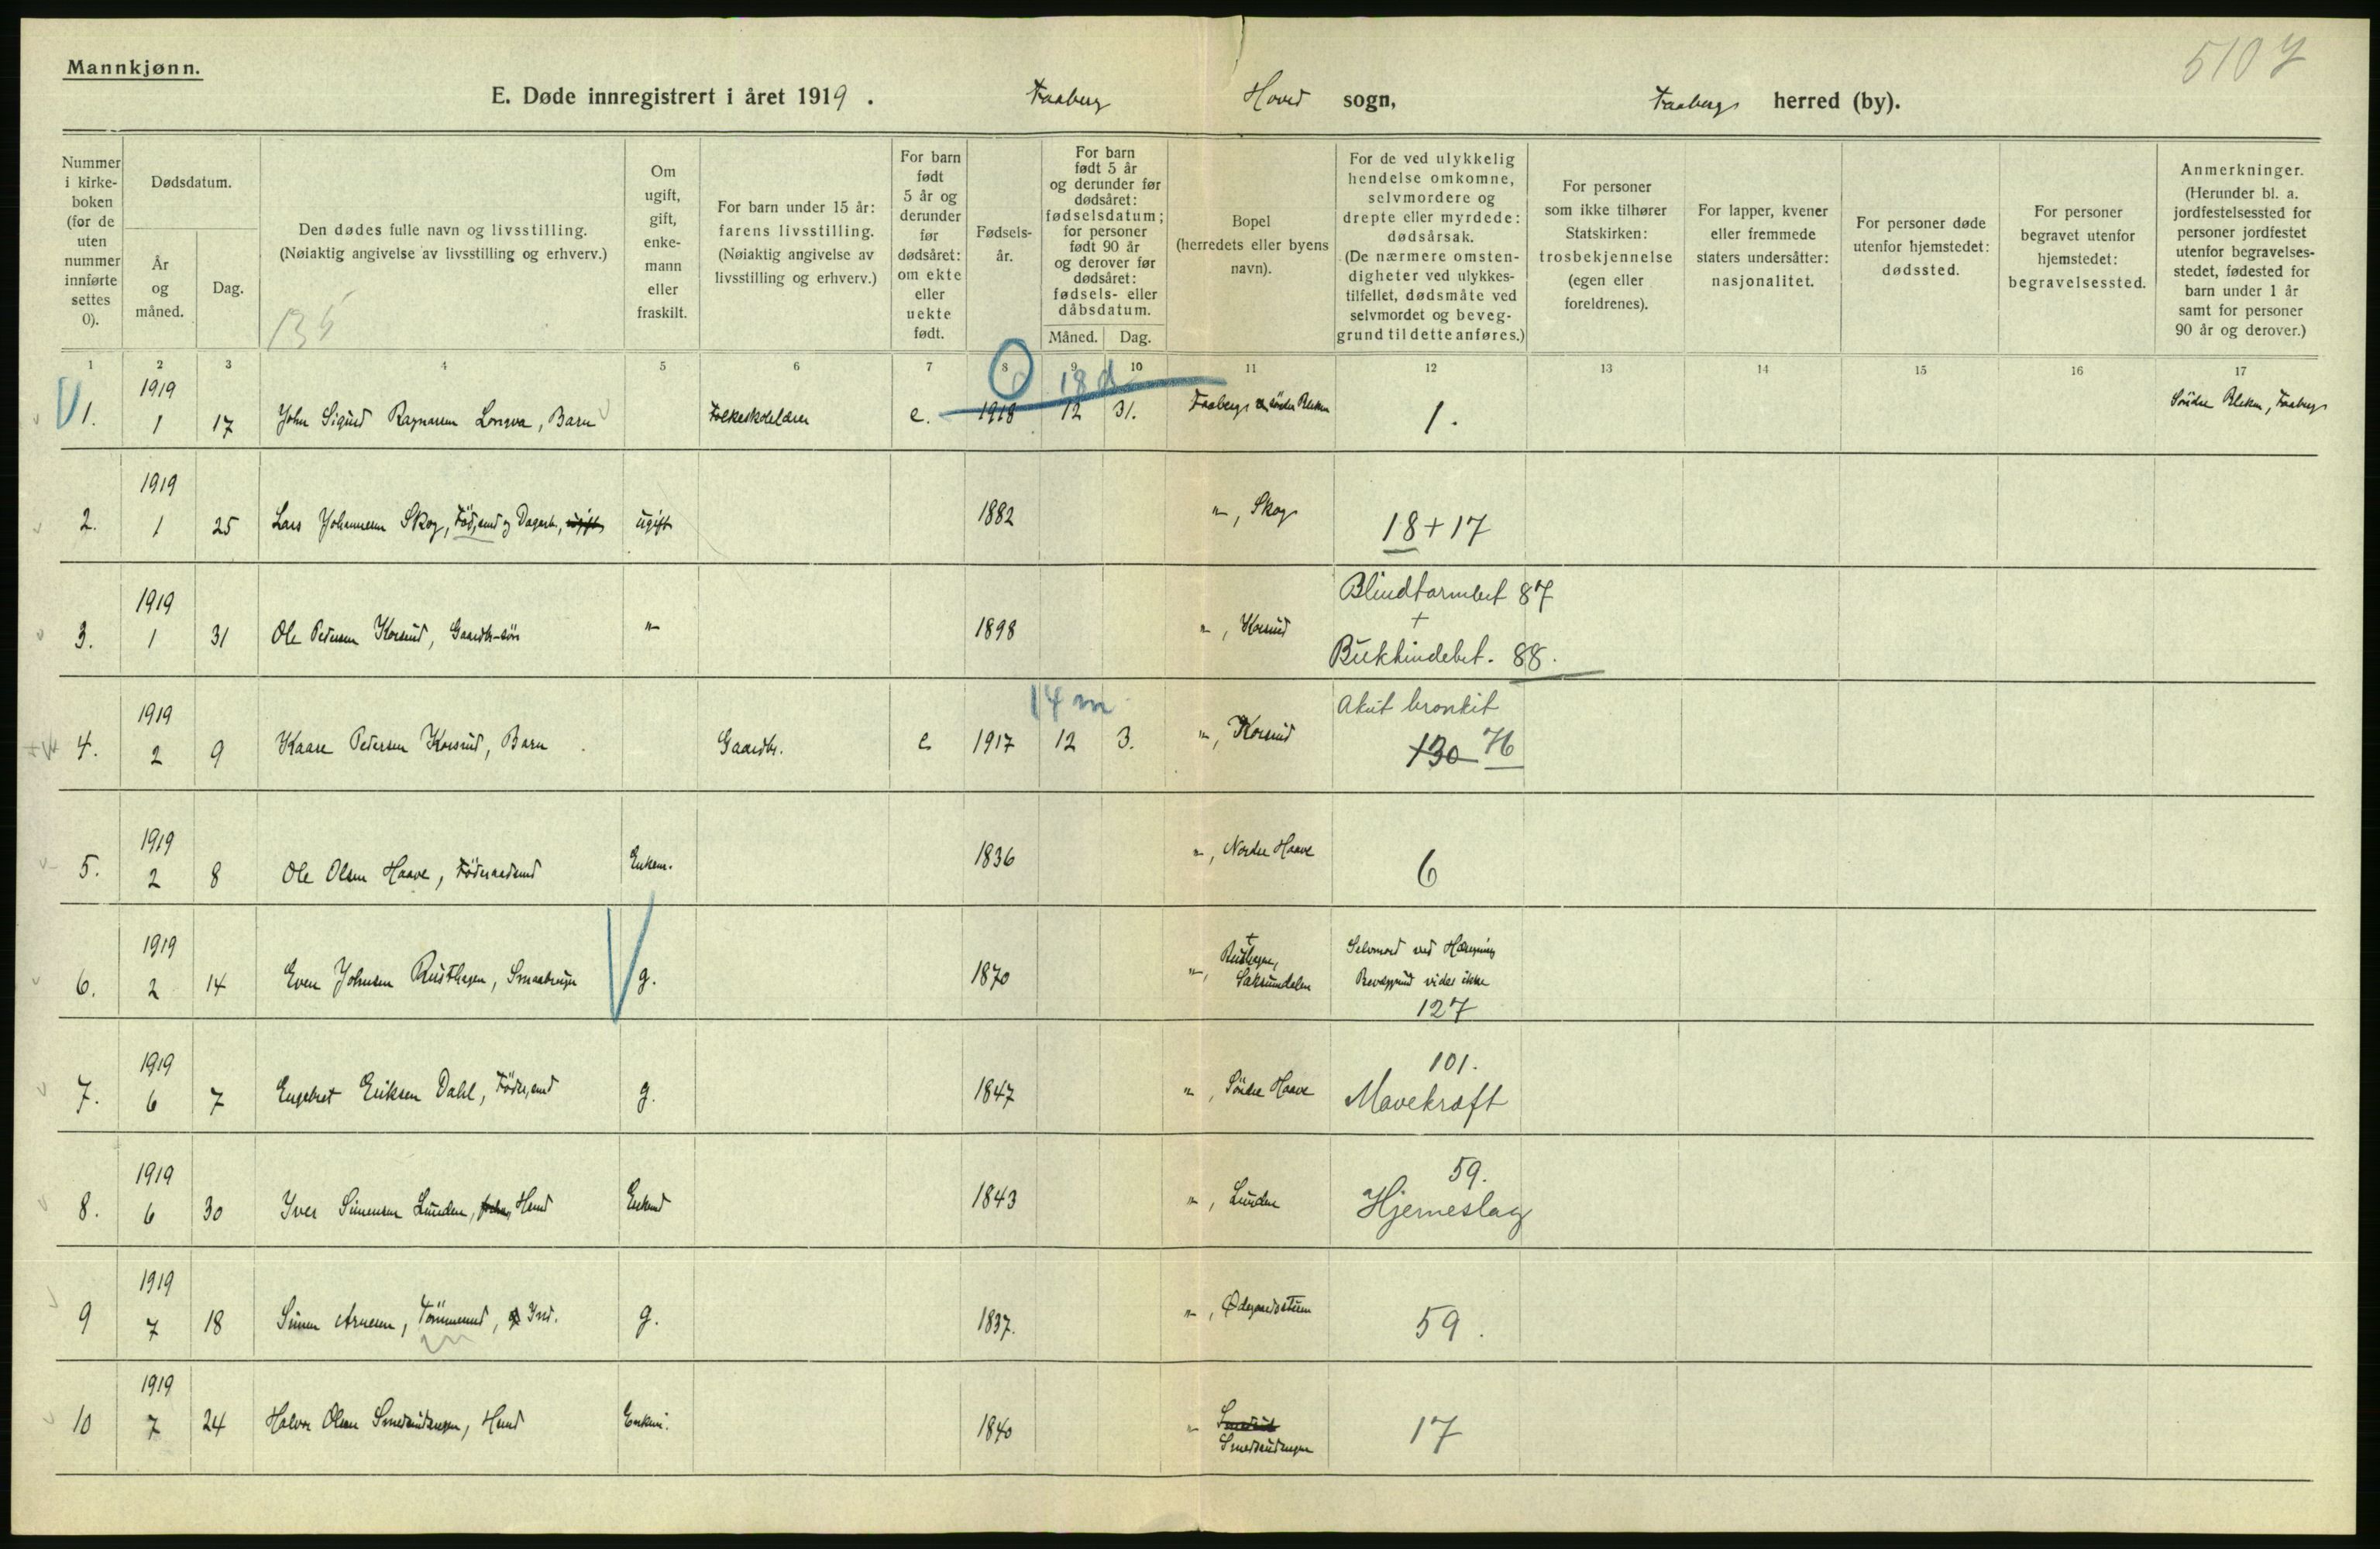 Mannkjønn.
5107
E. Døde innregistrert i året 1919. Faaberg Hoved sogn, Faaberg herred (by).
Nummer i kirke-boken (for de uten nummer innførte settes 0).
Dødsdatum.
År og måned.
Dag.
Den dødes fulle navn og livsstilling.
(Nøiaktig angivelse av livsstilling og erhverv.)
135
Om ugift, gift, enke-mann eller fraskilt.
For barn under 15 år: farens livsstilling.
(Nøiaktig angivelse av livsstilling og erhverv.)
For barn født 5 år og derunder før dødsåret: om ekte eller uekte født.
Fødsels-år.
For barn født 5 år og derunder før dødsåret: fødselsdatum; for personer født 90 år og derover før dødsåret: fødsels- eller dåbsdatum.
Måned. Dag.
Bopel (herredets eller byens navn).
For de ved ulykkelig hendelse omkomne, selvmordere og drepte eller myrdede: dødsårsak.
(De nærmere omsten-digheter ved ulykkes-tilfellet, dødsmåte ved selvmordet og beveg-grund til dette anføres.)
For personer som ikke tilhører Statskirken: trosbekjennelse (egen eller foreldrenes).
For lapper, kvener eller fremmede staters undersåtter: nasjonalitet.
For personer døde utenfor hjemstedet: dødssted.
For personer begravet utenfor hjemstedet: begravelsessted.
Anmerkninger.
(Herunder bl. a. jordfestelsessted for personer jordfestet utenfor begravelses-stedet, fødested for barn under 1 år samt for personer 90 år og derover.)
1 2 3 4 5 6 7 8 9 10 11 12 13 14 15 16 17
0 18 d
1. 1919 1 17 John Sigurd Ragnarsen Longva, Barn Folkeskolelærer e. 1918 12 31. Faaberg, søndre Bleken 1. Søndre Bleken, Faaberg
2. 1919 1 25 Lars Johannesen Skog, Føds.md og Dagarb., ugift ugift 1882 "-, Skog 18+17
3. 1919 1 31 Ole Pedersen Korsrud, Gaardbr-søn "- 1898 "-, Korsrud Blindtarmbet 87 + Bukhindebet. 88.
14 m
4. 1919 2 9 Kaare Pedersen Korsrud, Barn Gaardbr. e 1917 12 3. "-, Korsrud Akut bronkit 130 76
5. 1919 2 8 Ole Olsen Haave, Føderaadsmd Enkem. 1836 "-, Nordre Haave 6
6. 1919 2 14 Even Johnsen Rusthagen, Smaabruger g. 1870 "-, Rusthagen, Saksumdalen Selvmord ved Hængning Bevæggrund vides ikke 127
7. 1919 6 7 Engebret Eriksen Dahl, Føder.md g. 1847 "-, Søndre Haave 101. Mavekræft
8. 1919 6 30 Iver Simensen Lunden, Hmd Enkmd 1843 "-, Lunden 59. Hjerneslag
9 1919 7 18 Simen Arnesen, Tømmermd, Ind. g. 1837. "-, Ødegaardsstuen 59.
10 1919 7 24 Halvor Olsen Smedrudengen, Hmd Enkem. 1840 "- Smedrud Smedrudengen 17